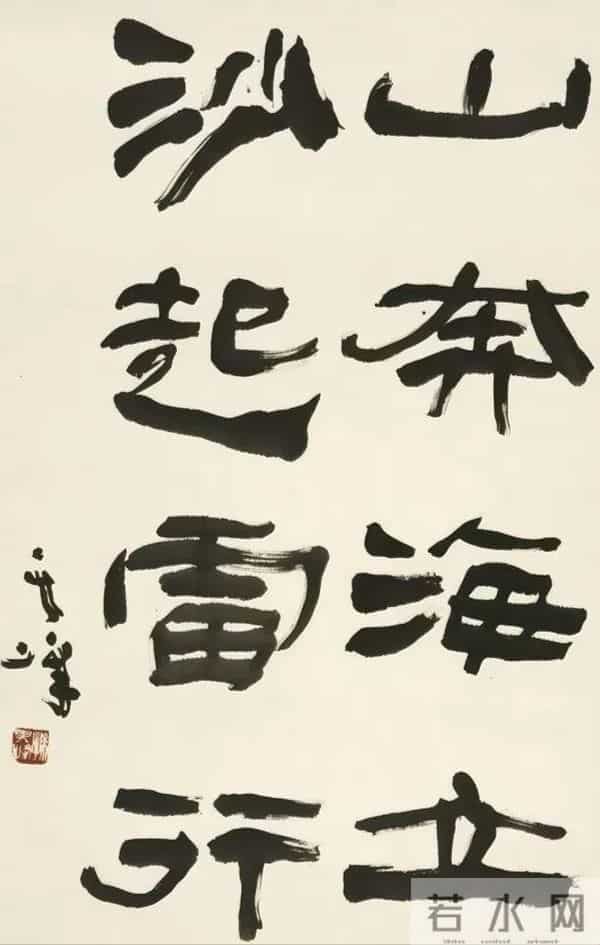 山奔海立
沙起雷行
其峰
若水网